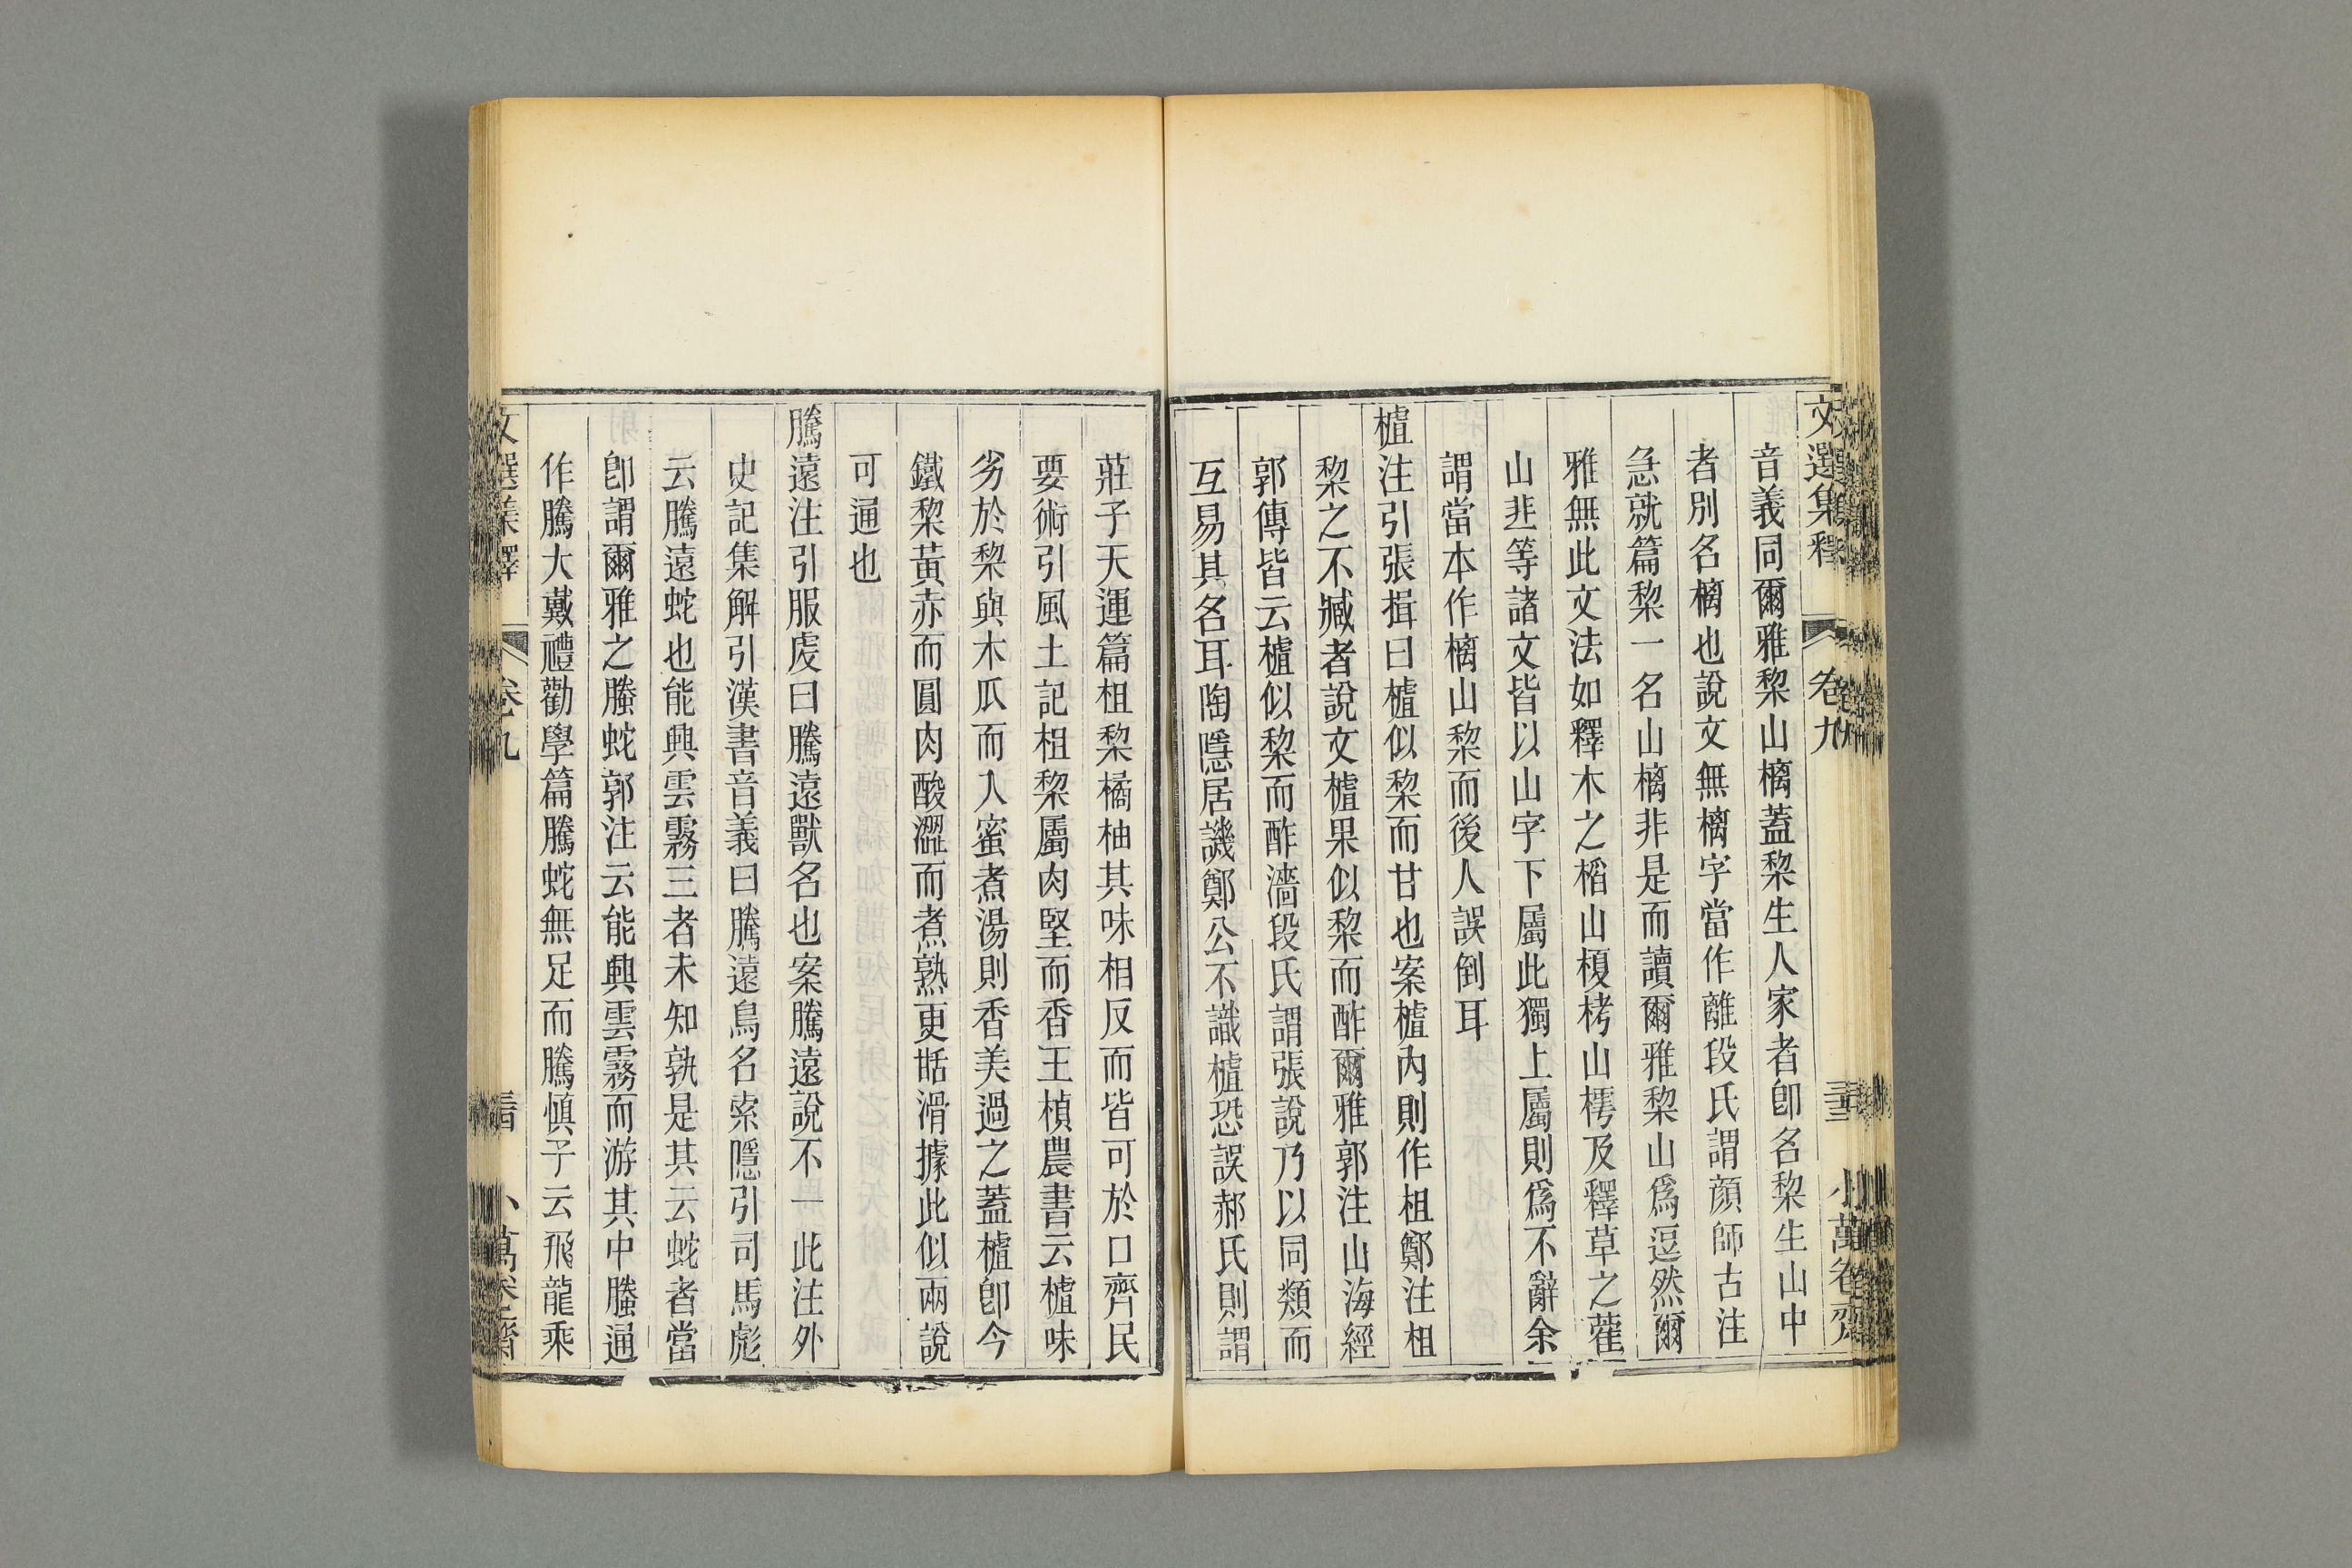 文選集釋 卷九 三十三 小萬卷齋
音義同爾雅棃山樆蓋棃生人家者卽名棃生山中
者別名樆也說文無樆字當作離段氏謂顔師古注
急就篇棃一名山樆非是而讀爾雅棃山爲逗然爾
雅無此文法如釋木之槄山榎栲山樗及釋草之藿
山韭等諸文皆以山字下屬此獨上屬則爲不辭余
謂當本作樆山棃而後人誤倒耳
樝注引張揖曰樝似棃而甘也案樝內則作柤鄭注柤
棃之不臧者說文樝果似棃而酢爾雅郭注山海經
郭傳皆云樝似棃而酢濇段氏謂張說乃以同類而
互易其名耳陶隱居譏鄭公不識樝恐誤郝氏則謂
莊子天運篇柤棃橘柚其味相反而皆可於口齊民
要術引風土記柤棃屬肉堅而香王楨農書云樝味
劣於棃與木瓜而入蜜煮湯則香美過之蓋樝卽今
鐵棃黃赤而圓肉酸澀而煮熟更甛滑據此似兩說
可通也
騰遠注引服虔曰騰遠獸名也案騰遠說不一此注外
史記集解引漢書音義曰騰遠鳥名索隱引司馬彪
云騰遠蛇也能興雲霧三者未知孰是其云蛇者當
卽謂爾雅之螣蛇郭注云能興雲霧而游其中螣通
作騰大戴禮勸學篇騰蛇無足而騰愼子云飛龍乘
文選集釋 卷九 小萬卷齋